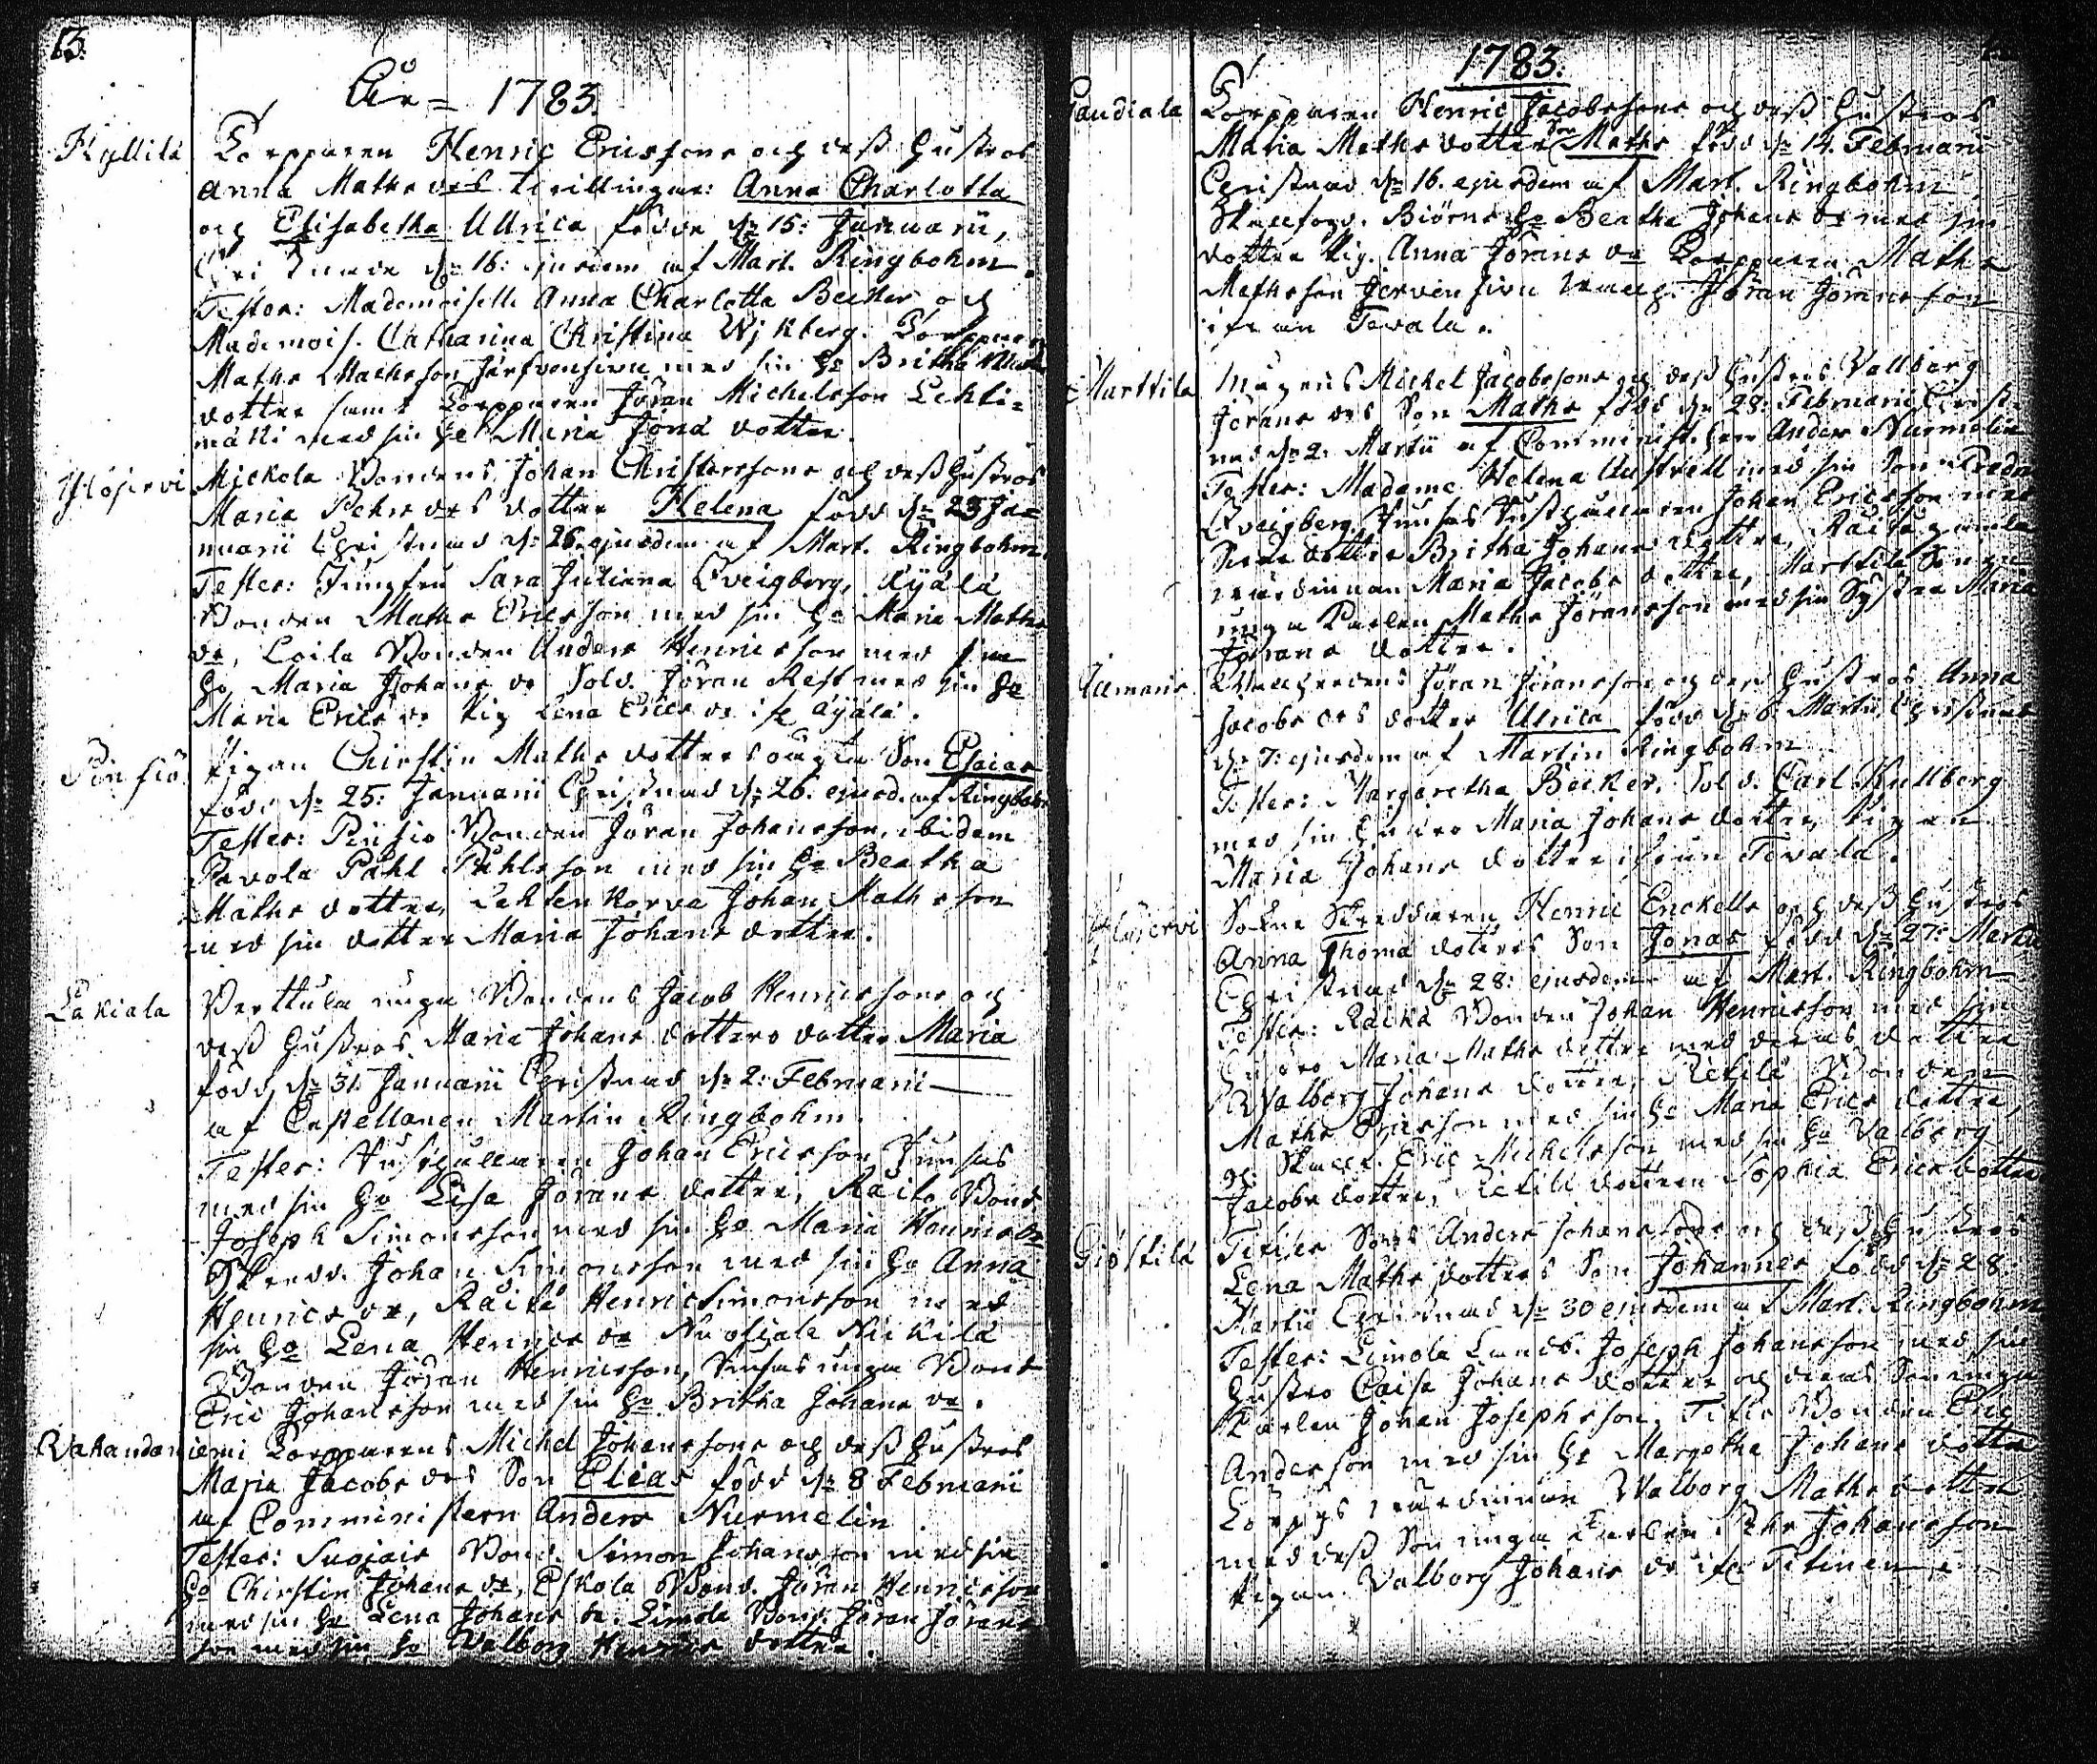 13.
Åhr = 1783.
Kyllilä
Torpparen Henric Ericssons och dess hustros
Anna Maths dos tvillingar: Anna Charlotta
och Elisabetha Ullrica födde d. 15: Januarii,
Christnade d. 16: ejusdem af Mart. Ringbohm.
Testes: Mademoiselle Anna Charlotta Becker och
Mademois. Catharina Christina Wikberg. Torpparen
Maths Mathsson Järfvensivu med sin ho Britha Maths
dotter samt Torpparen Jöran Michelsson Lehti=
mäki med sin ho Maria Jöra dotter.
Ylöjervi
Mickola Bondens Johan Christerssons och dess hustros
Maria Pehrs dos dotter Helena född d. 23 Ja=
nuarii Christnad d. 26. ejusdem af Mart. Ringbohm.
Testes: Jungfru Sara Juliana Qveigberg, Äyälä
Bonden Maths Ericsson med sin ho Maria Maths
dr, Loila Bonden Anders Henricsson med sin
ho Maria Johans dr Sold. Jöran Rest med sin ho
Maria Erics dr Pig. Lena Erics dr if. Äyälä.
Pinsiö
Pigan Chirstin Maths dotters oägta Son Esaias
född d. 25: Januarii Christnad d. 26. ejusd. af Ringbohm
Testes: Pinsio Bonden Jöran Johansson, ibidem
Pavola Påhl Påhlsson med sin ho Beatha
Maths dotter, Lehtenkorva Johan Mathsson
med sin dotter Maria Johans dotter.
Lakiala
Verttula unga Bondens Jacob Henricssons och
dess hustros Maria Johans dotters dotter Maria
född d. 31. Januarii Christnad d. 2: Februarii
af Capellanen Martin Ringbohm.
Testes: Johan Ericsson Junsas
med sin ho Lisa Jörans dotter, Räikö Bond
Joseph Simonsson med sin ho Maria Henrics dr
Skredd. Johan Simonsson med sin ho Anna
Henrics dr, Räikö Henric Simonsson med
sin ho Lena Henrics dr Nuosiala Nickilä
Bonden Jöran Henricsson, Junsas unga Bond
Eric Johansson med sin ho Britha Johans dr.
Vahandaniemi
Torpparens Michel Johanssons och dess hustros
Maria Jacobs dos Son Elias född d. 8 Februarii
af Comministern Anders Nurmelin
Testes: Suojais Bond. Simon Johansson med sin
ho Chirstin Johans dr, Eskola Bond. Jöran Henricsson
med sin ho Lena Johans dr. Limola Bond. Jöran Jörans
son med sin ho Valborg Henrics dotter.
1783.
Pandiala
Torpparen Henric Jacobssons och dess hustros
Maria Maths dotters Son Maths född d. 14. Februarii
Christnad d. 16. ejusdem af Mart. Ringbohm
Skallfogd. Biörns ho Beatha Johans dr med sin
dotter Pig. Anna Jörans dr Torpparen Maths
Mathsson Jervensivu Jöran Jöransson
ifrån Tevala.
Marttila
Michel Jacobssons och dess hustros Vallborg
Jörans dos Son Maths född d. 28. Februarii Christ=
nad d. 2. Martii af Comminist. herr Anders Nurmelin
Testes: Madame Helena Austrell med sin Son Fredr.
Qveigberg. Junsas Johan Ericsson med
dotter Britha Johans dotter, Räikö gamla
värdinnan Maria Jacobs dotter, Marttila Sonen
unga Karlen Maths Jöransson med sin Syster Maria
Jörans dotter.
Jöran Jöransson och dess hustros Anna
Jacobs dos dotter Ulrica född d. 6 Martii, Christnad
d. 7: ejusdem af Martin Ringbohm
Testes: Margaretha Becker. Sold. Carl Kullberg
med sin hustro Maria Johans dotter, Pigan
Maria Johans dotter ifrån Tevala.
Ylöjervi
Sokne Skreddaren Henric Enckells och dess hustros
Anna Thoma dotters Son Jonas född d. 27: Martii
Christnad d. 28: ejusdem af Mart. Ringbohm
Testes: Räikä Bonden Johan Henricsson med sin
hustro Maria Maths dotter med deras dotter
Valborg Johans dotter, Bonden
Maths Ericsson med sin ho Maria Erics dotter,
Eric Michelsson med sin ho Valborg
Jacobs dotter, dottren Sophia Erics dotter
Giöstilä
Anders Johanssons och dess hustros
Lena Maths dotters Son Johannes född d. 28
Martii Christnad d. 30 ejusdem af Mart. Ringbohm
Testes: Limola Landb. Joseph Johansson med sin
hustro Caisa Johans dotter och deras Son unga
Karlen Johan Josephsson, Bonden Eric
Andersson med sin ho Margetha Johans dotter
värdinnan Walborg Maths dotter
med dess Son unga Karlen Pehr Johansson
Pigan Valborg Johans dr ifr. Titinen